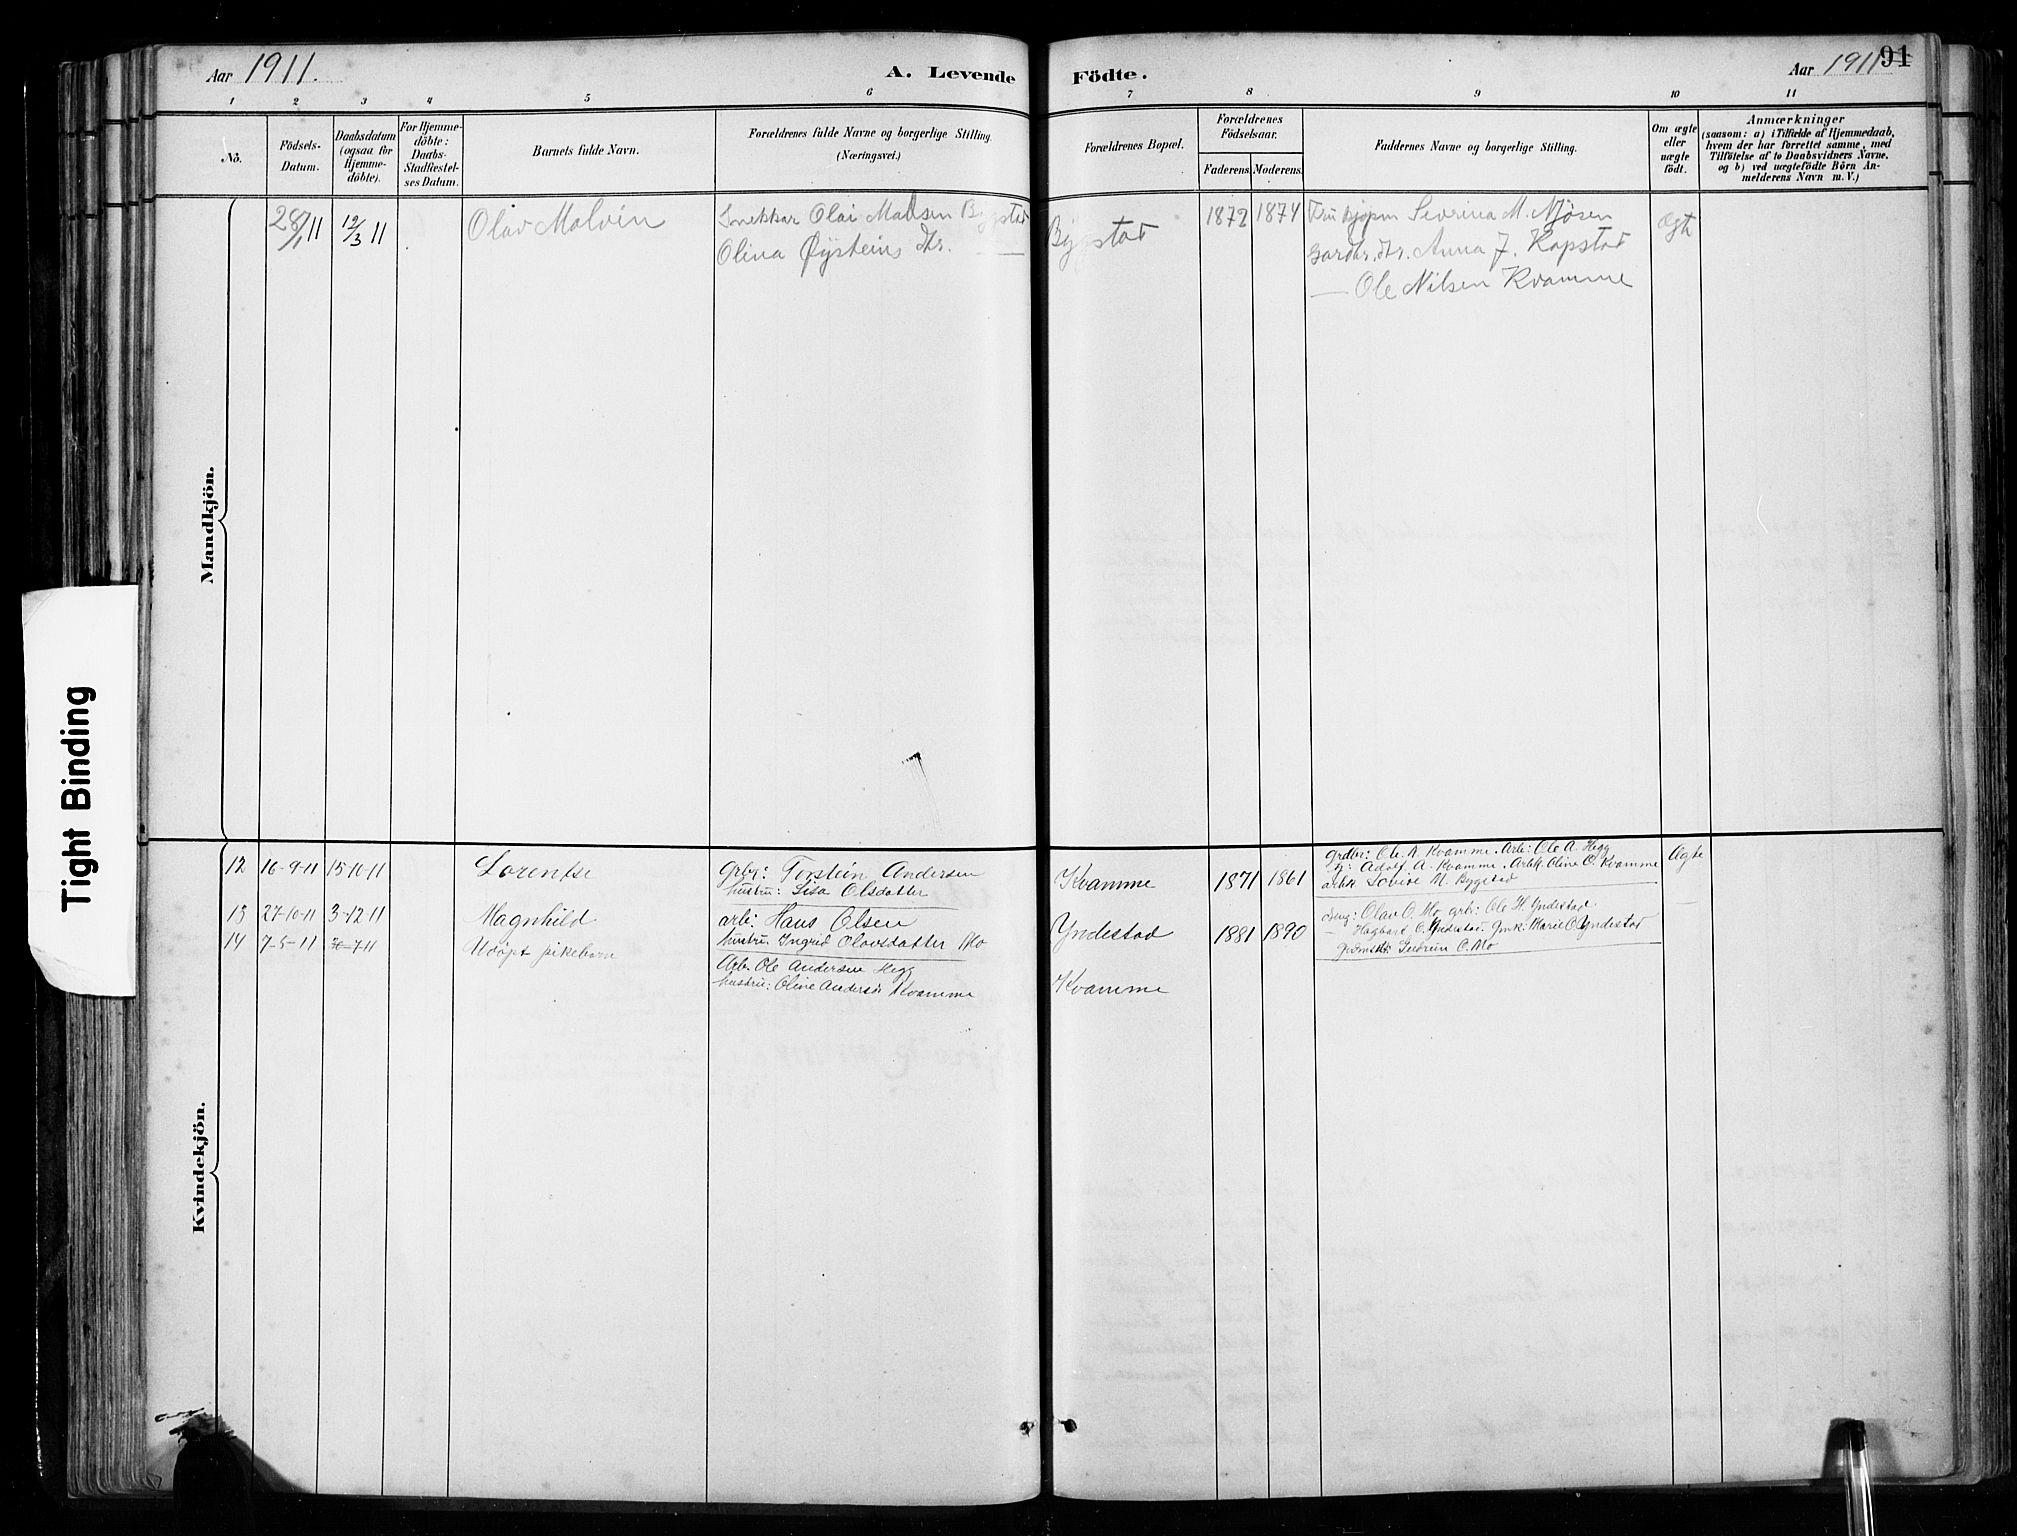 Aar 1911.
A. Levende
Födte.
Aar 1911
91
1 2 3 4 5 6 7 8 9 10 11
No.
Födsels-
Datum.
Daabsdatum
(ogsaa for
Hjemme-
döbte).
For Hjemme-
döbte:
Daabs-
Stadfæstel-
ses Datum.
Barnets fulde Navn.
Forældrenes fulde Navne og borgerlige Stilling.
(Næringsvei.)
Forældrenes Bopæl.
Forældrenes
Födselsaar.
Faderens. Moderens.
Faddernes Navne og borgerlige Stilling.
Om ægte
eller
uægte
født.
Anmærkninger
(saasom: a) i Tilfælde af Hjemmedaab,
hvem der har forrettet samme, med
Tilföielse af to Daabsvidners Navne,
og b) ved uægtefödte Börn An-
melderens Navn m. V.)
Mandkjön.
28/1 11 12/3 11 Olav Malvin Snekkar Olai Madsen Bygstad Bygstad 1872 1874 Severina M. Njøsen Ægte
Olina Øysteins dtr. — Anna J. Kapstad
— Ole Nilsen Kvamme
Tight Binding
Kvindekjön.
12 16-9-11 15-10-11 Lorentse grbr: Torstein Andersen Kvamme 1871 1861 grdbr: Ole A. Kvamme. Arb: Ole A. Hegg Ægte
hustru: Lisa Olsdatter Adolf A. Kvamme. Arbk. Oline O. Kvamme
arbk Lovise M. Bygstad
13 27-10-11 3-12-11 Magnhild arb: Hans Olsen Yndestad 1881 1890 Olav O. Mo, grbr: Ole H. Yndestad —
hustru: Ingrid Olavsdatter Mo — Hagbart O. Yndestad. Gmk. Marie O Yndestad
Gudrun O. Mo
14 7-5-11 7 11 Udöpt pikebarn Arb. Ole Andersen Hegg Kvamme
hustru: Oline Andersdr Kvamme